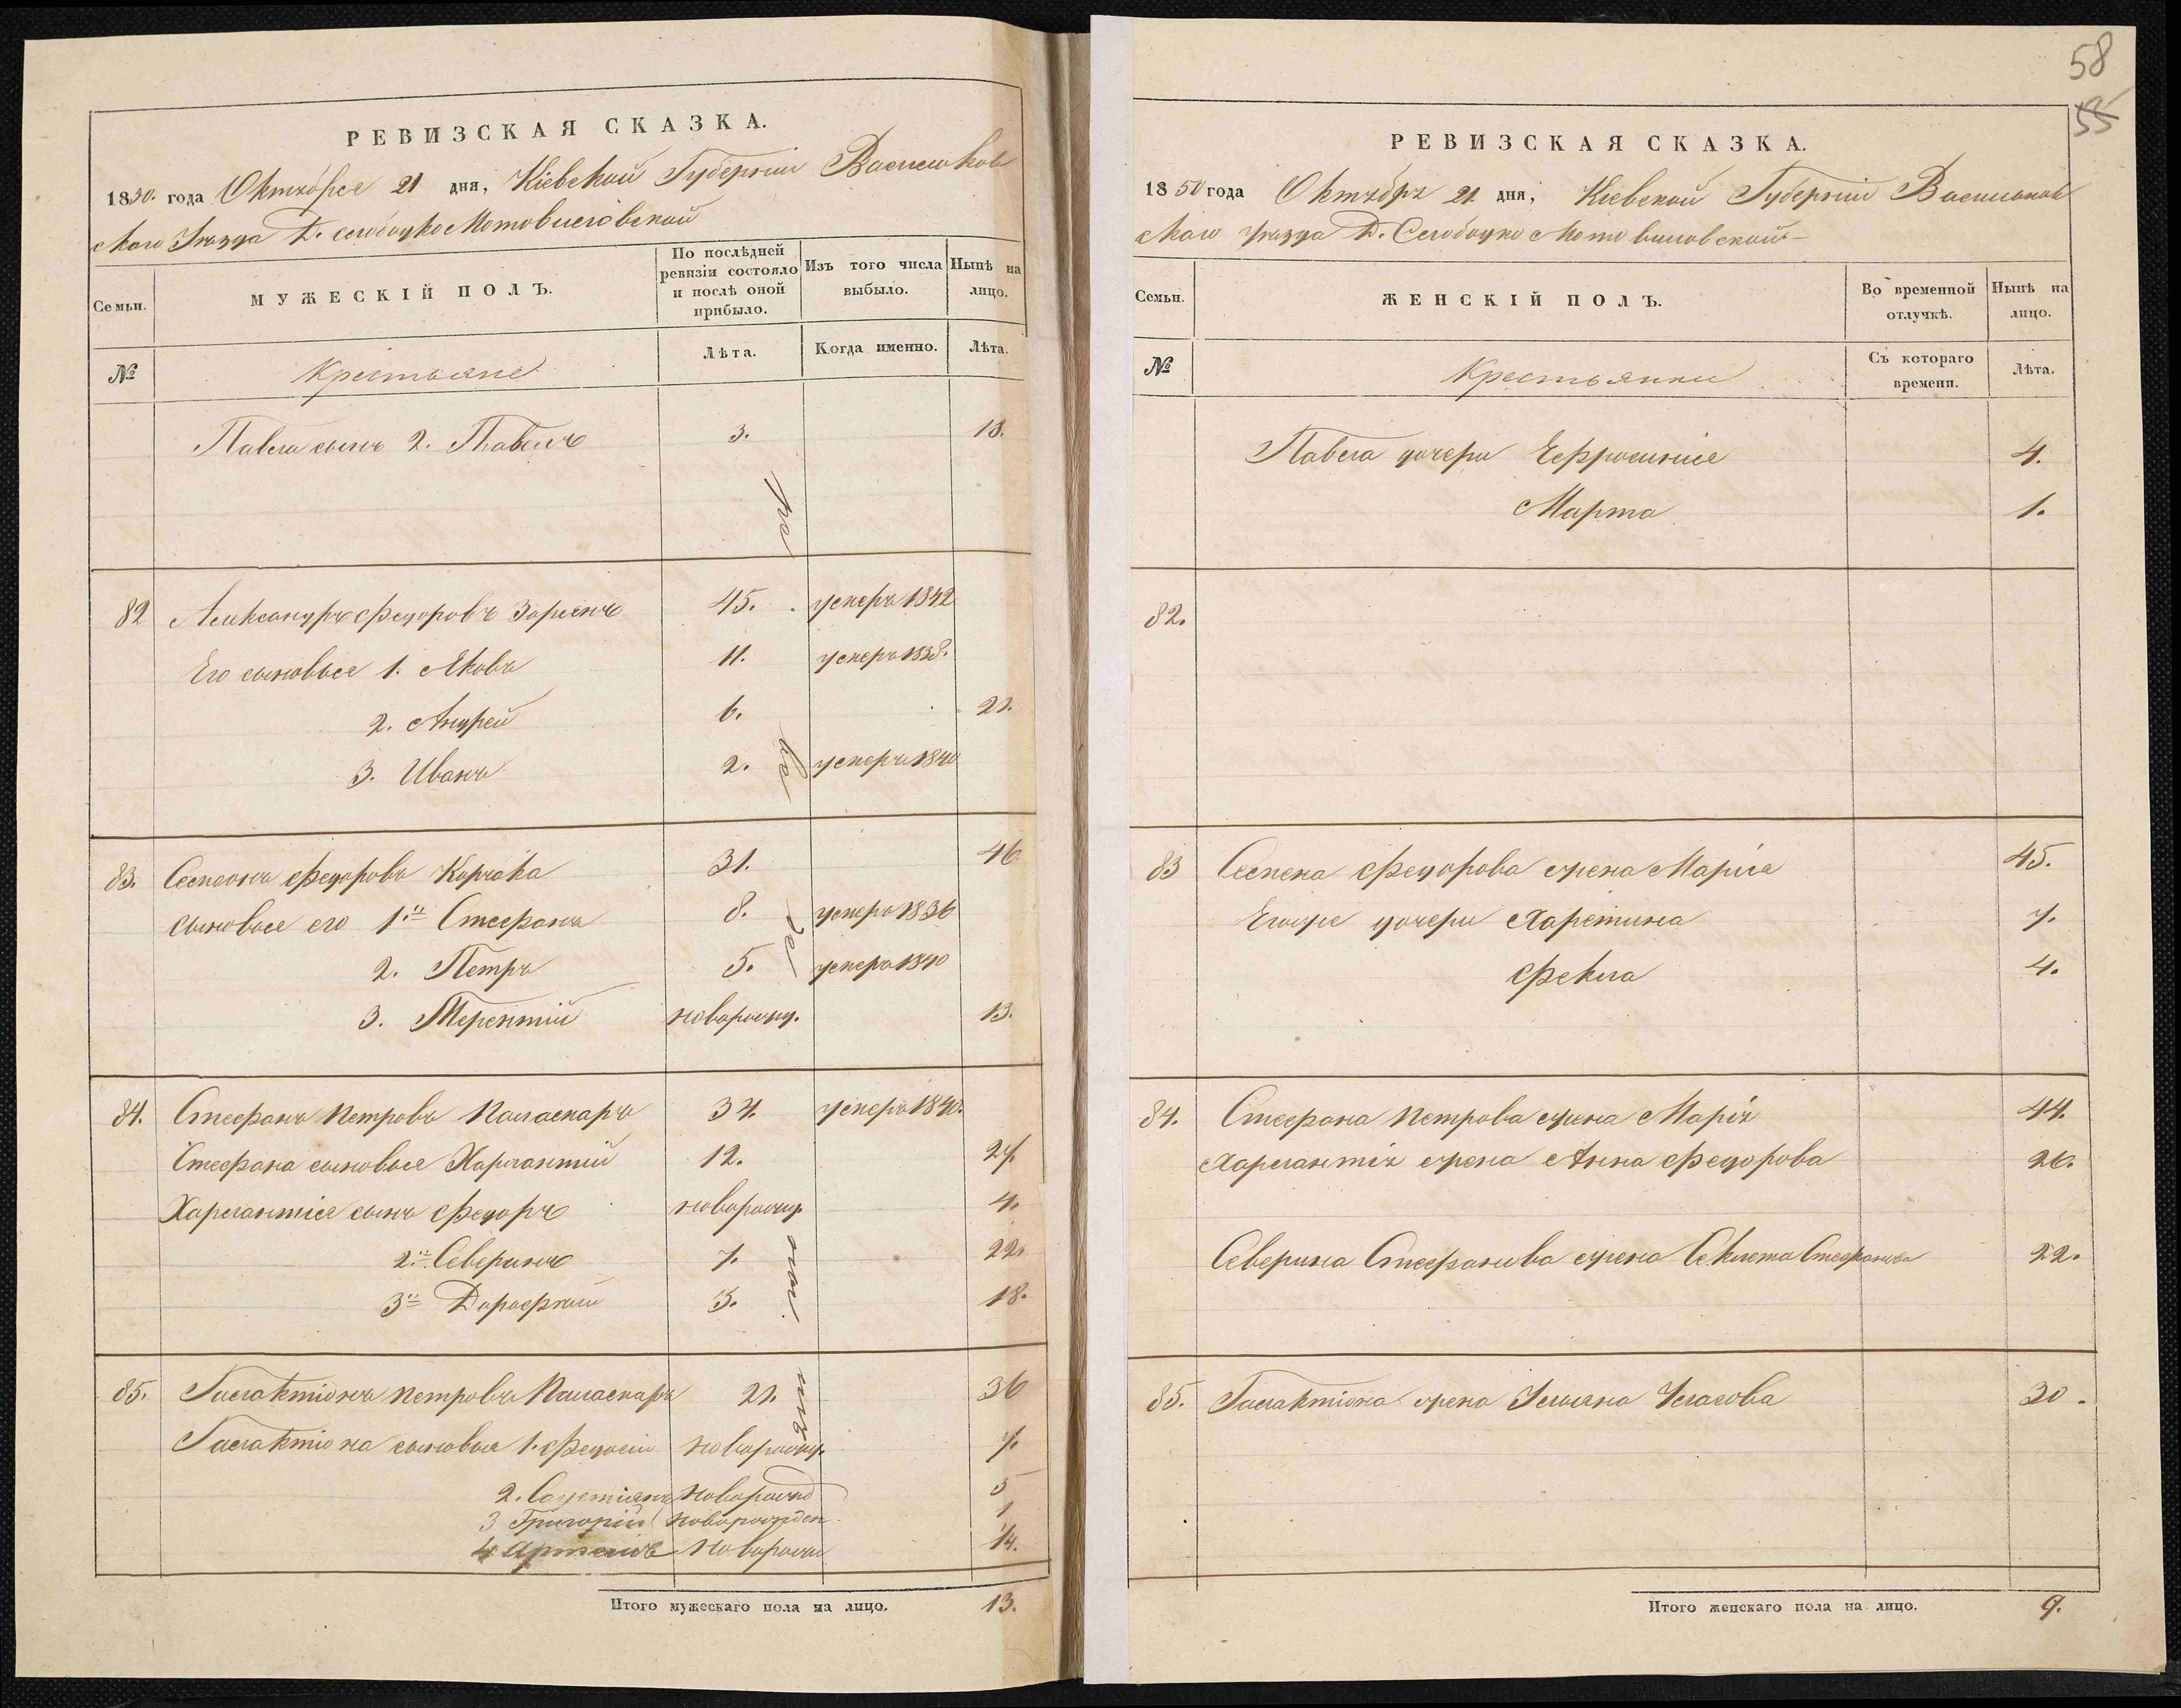 РЕВИЗСКАЯ СКАЗКА.
1850. года Октября 21 дня, Кіевской Губерніи Васильков
скаго Уѣзда Д. Слободки Мотовиловской
Семьи.
МУЖЕСКІЙ ПОЛЪ.
По послѣдней ревизіи состояло и послѣ оной прибыло.
Изъ того числа выбыло.
Нынѣ на лицо.
№
Крестьяне
Лѣта.
Когда именно.
Лѣта.
Павла сынъ 2. Павелъ 3. 18.
82 Александръ Федоровъ 45. умеръ 1842
Его сыновья 1. Яковъ 11. умеръ 1838.
2. Андрей 6. 21.
3. Иванъ 2. умеръ 1840
83. Семенъ Федоровъ Корчака 31. 46
сыновья его 1й Стефанъ 8. умеръ 1836
2. Петръ 5. умеръ 1840
3. Терентій новорожд. 13.
84. Стефанъ Петровъ Паламаръ 34. умеръ 1840.
Стефана сыновья Харлантій 12. 27
Харлантія сынъ Федоръ новорожд 4.
2й Северинъ 7. 22.
3й Дорофей 3. 18.
85. Галактіонъ Петровъ Паламаръ 21. 36
Галактіона сыновья 1. Федосій новорожд. 7.
2. новорожд 5
3 Григорій новорожден 1
4 Артемъ новорожд 14.
Итого мужескаго пола на лицо. 13.
58
55
РЕВИЗСКАЯ СКАЗКА.
1850 года Октября 21. дня, Кіевской Губерніи Васильков
скаго Уѣзда Д. Слободки Мотовиловской
Семьи.
ЖЕНСКІЙ ПОЛЪ.
Во временной отлучкѣ.
Нынѣ на лицо.
№
Крестьянки
Съ котораго времени.
Лѣта.
Павла дочери Ефросинія 4.
Марта 1.
82.
83 Семена Федорова жена Марія 45.
Егоже дочери Харитина 7.
Фекла 4.
84. Стефана Петрова жена Марія 44.
Харлантія жена Анна Федорова 26.
Северина Стефанова жена Секлета Стефанова 22.
85. Галактіона жена Ульяна Власова 30.
Итого женскаго пола на лицо. 9.